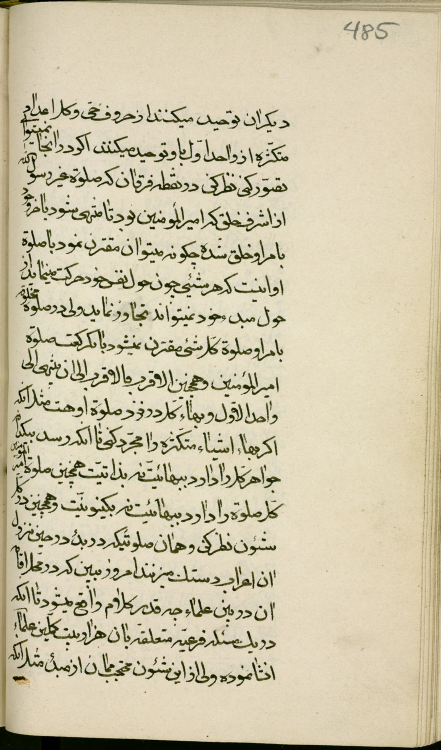 485
دیگران توحید میکنند از حروف حی و کل اعداد
متکثره از واحد اول باو توحید میکنند اگر در انجا نمیتوانی
تصور کنی نظر کن در نقطه فرقان که صلوة غیر رسول الله
از اشرف خلق که امیر المؤمنین بود تا منتهی شود باخر وجود
بامر او خلق شده چگونه میتوان مقترن نمود با صلوة
او اینست که هر شیئی چون حول نفس خود حرکت مینماید از
حول مبدء خود نمیتواند تجاوز نماید ولی در صلوة
بامر او صلوة کل شیء مقترن نمیشود با یک رکعت صلوة
امیر المؤمنین و همچنین الاقرب فالاقرب الی ان ینتهی الی
واحد الاول و بهاء کل در نزد صلوة او هست مثل انکه
اگر بهاء اشیاء متکثره را مجرد کنی تا انکه رسد بیک
جواهر کل را دارد ببهائیت نه بذاتیت همچنین صلوة امیر المؤمنین
کل صلوة را دارد ببهائیت نه بکینونیت و همچنین در کل
شئون نظر کن و همان صلوتیکه در بدء در حین نزول
ان اعراب دستک میزدند امروز ببین که در محل اقامه
ان در بین علماء چه قدر کلام واقع میشود تا انکه
در یک مسئله فرعیه متعلقه بان هزار بیت کاملین علماء
انشا نموده ولی از این شئون محتجب ممان از مبدء مثل انکه